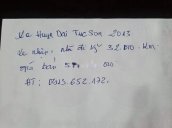 Xe Huyn Dai TucSon 2013
Xe nhập, nhà đi kỹ 32.000 Km
giá bán 5
ĐT: 0915.652.172.